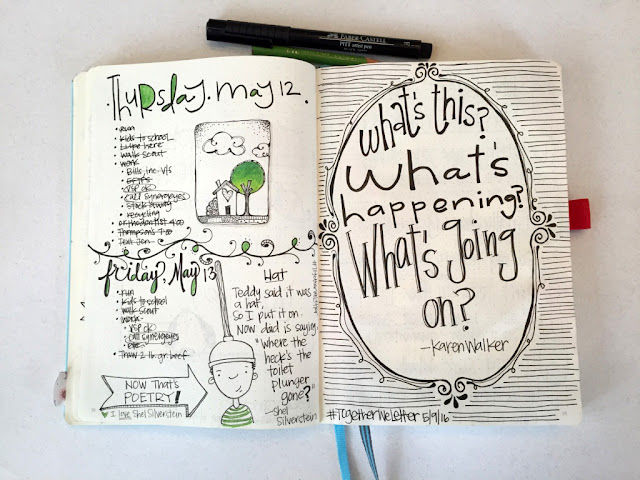 FABER-CASTELL
PITT artist pen
B
Thursday. May 12.
• run
• kids to school
• walk scout
• work
• Bills, inc. v/s
• call synergeyes
• recycling
• orthodontist 4:00
• Thompson's 7:00
• Text Jen
friday, May 13
• run
• kids to school
• walk scout
• work
• VSP ck
• call synergeyes
• Thaw 2 lb. gr. beef
NOW THAT'S
POETRY!
I Love Shel Silverstein
Hat
Teddy said it was
a hat,
So I put it on.
Now dad is saying,
"Where the
heck's the
toilet
plunger
gone?"
-Shel
Silverstein
what's this?
what's
happening?
What's going
on?
-Karen Walker
#TogetherWeLetter 5/9/16